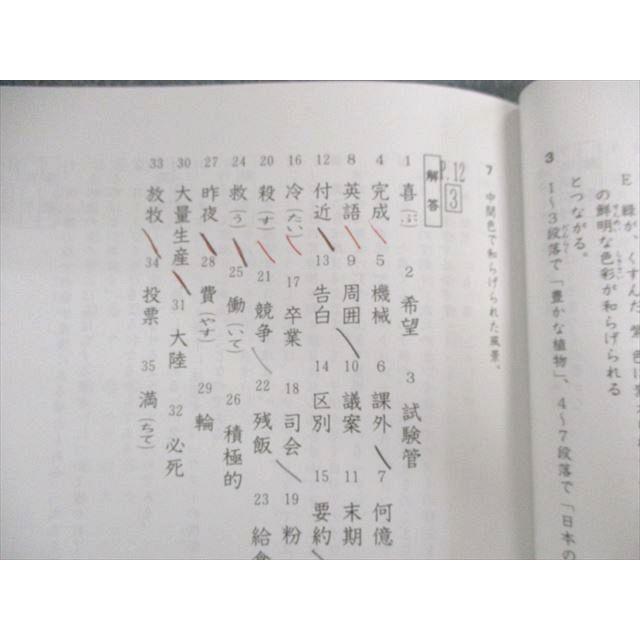 E 緑が、くすんだ
の鮮明な色彩が和らげられる
とつながる。
3 1〜3段落で「豊かな植物」、4〜7段落で「日本の
7 中間色で和らげられた風景。
P.12 3
解答
1 喜(ぶ) 2 希望 3 試験管
4 完成 5 機械 6 課外 7 何億
8 英語 9 周囲 10 議案 11 末期
12 付近 13 告白 14 区別 15 要約
16 冷(たい) 17 卒業 18 司会 19 粉
20 殺(す) 21 競争 22 残飯 23 給食
24 救(う) 25 働(いて) 26 積極的
27 昨夜 28 費(やす) 29 輪
30 大量生産 31 大陸 32 必死
33 放牧 34 投票 35 満(ちて)